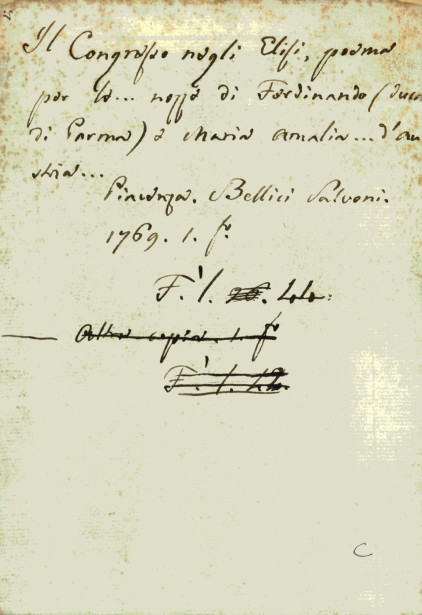 Il Congresso negli Elisi, poema
per le... nozze di Ferdinando (duca
di Parma) e Maria Amalia... d'Au
stria...
Piacenza. Bellici Salvoni.
1769. 1. fo
F. 1.
Altra copia. 1. fo
F. 1.
C